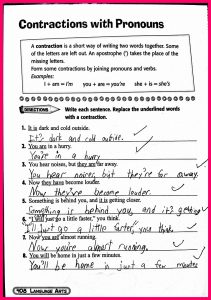 Contractions with Pronouns
A contraction is a short way of writing two words together. Some
of the letters are left out. An apostrophe (') takes the place of the
missing letters.
Form some contractions by joining pronouns and verbs.
Examples:
I + am = I'm you + are = you're she + is = she's
DIRECTIONS Write each sentence. Replace the underlined words
with a contraction.
1. It is dark and cold outside.
It's dark and cold outside.
2. You are in a hurry.
You're in a hurry.
3. You hear noises, but they are far away.
You hear noises, but they're far away.
4. Now they have become louder.
Now they've become louder.
5. Something is behind you, and it is getting closer.
Something is behind you, and it's getting
6. "I will just go a little faster," you think.
"I'll just go a little faster," you think.
7. Now you are almost running.
Now you're almost running.
8. You will be home in just a few minutes.
You'll be home in just a few minutes
408 LANGUAGE ARTS